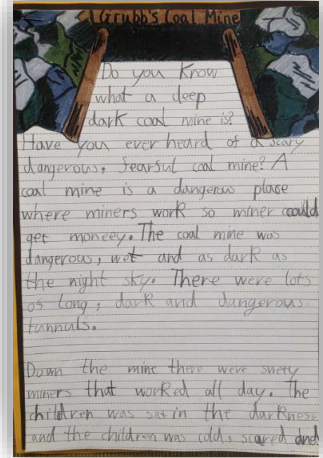 Grubb's Coal Mine
Do you know
what a deep
dark coal mine is?
Have you ever heard of a scary
dangerous, fearful coal mine? A
coal mine is a dangerous place
where miners work so miner could
get moneey. The coal mine was
dangerous, wet and as dark as
the night sky. There were lots
os long, dark and dangerous
tunnuls.
Down the mine there were swety
miners that worked all day. The
children was sat in the darkness
and the children was cold, scared and